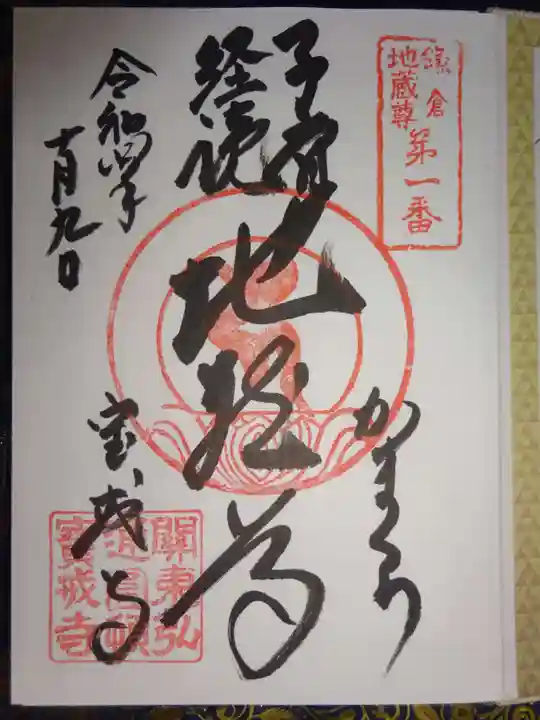 鎌倉
地蔵尊
第一番
子育
経読
地蔵尊
かまくら
令和四年
十月九日
宝戒寺
關東弘
寶戒寺